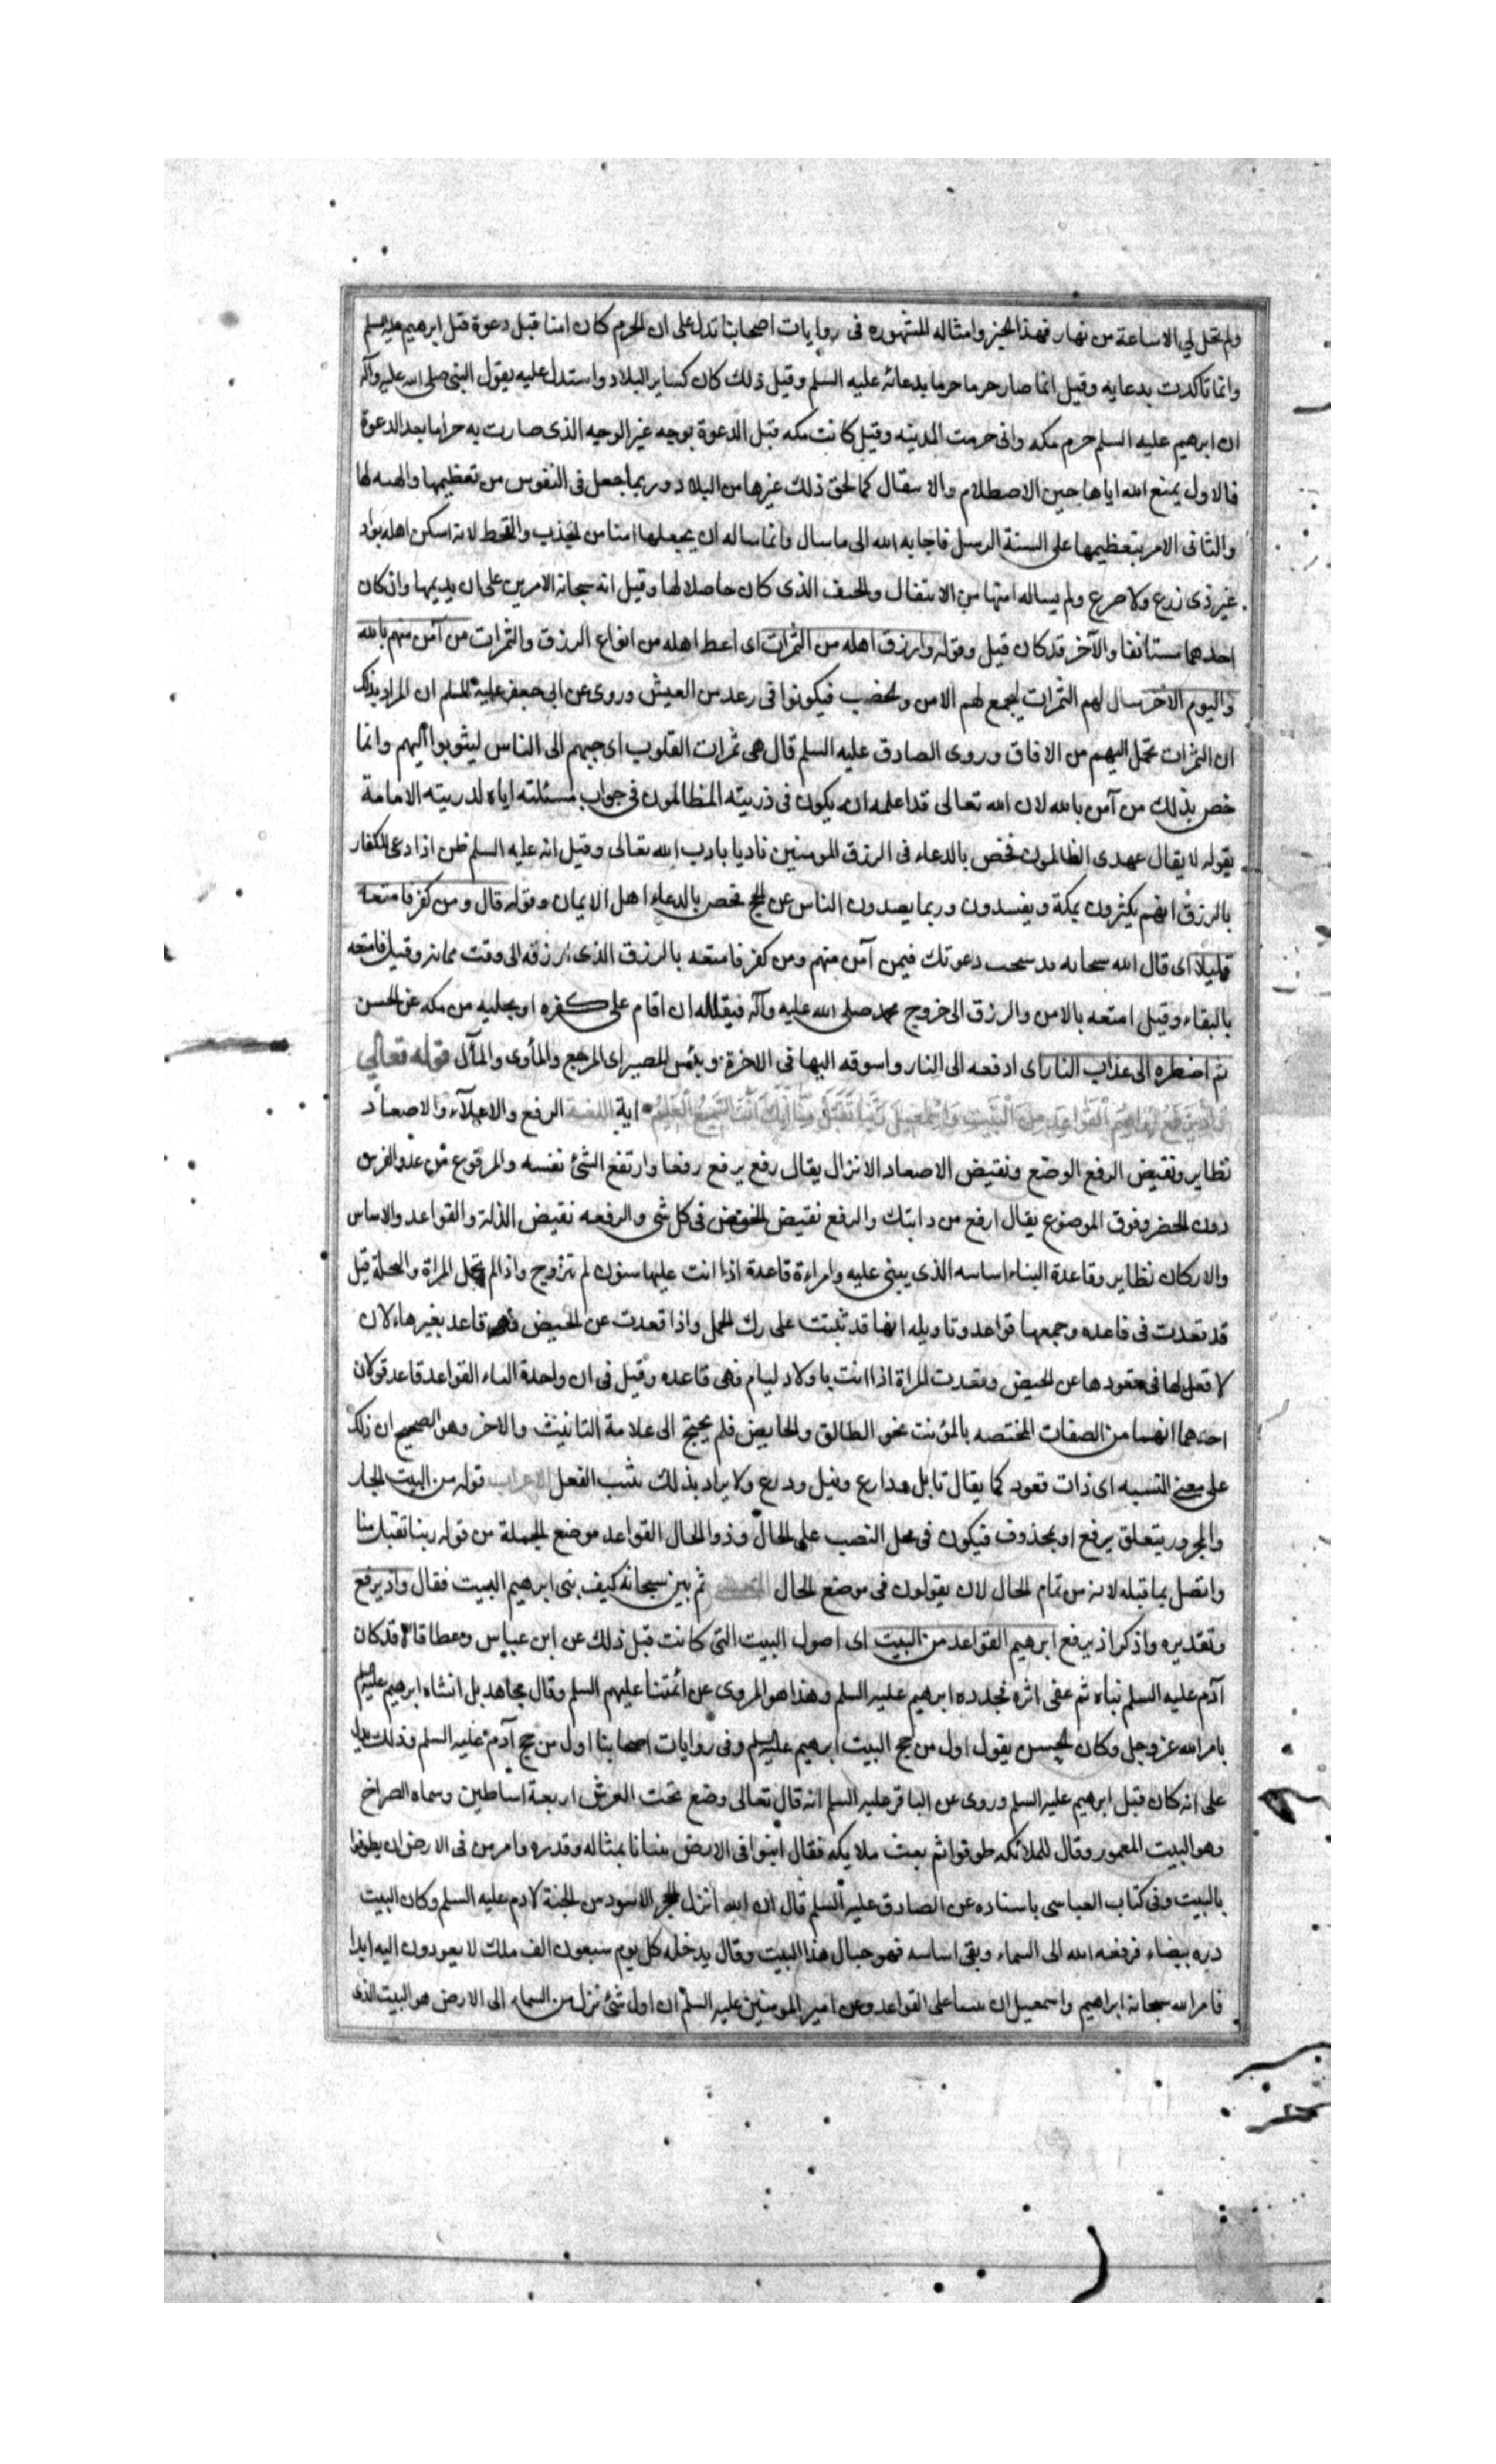 ولم تحل لي الا ساعة من نهار فهذا الخبز وامثاله المشهوره فى روايات اصحابنا تدل على ان الحرم كان امنا قبل دعوة قبل ابرهيم عليه السلم
وانما تاكدت بدعايه وقيل انما صار حرما حرما بدعائه عليه السلم وقيل ذلك كان كساير البلاد واستدل عليه بقول النبى صلى الله عليه وآله
ان ابرهيم عليه السلم حرم مكه وانى حرمت المدينه وقيل كانت مكه قبل الدعوة بوجه غير الوجيه الذى صارت به حراما بعد الدعوة
فالاول يمنع الله اياها حين الاصطلام والا سقال كما لحق ذلك غيرها من البلاد وربما جعل فى النفوس من تعظيمها والهسه لها
والثانى الامر بتعظيمها على السنة الرسل فاجابه الله الى ما سال وانما ساله ان يجعلها امنا من الجذب والقحط لانه اسكن اهله بواد
غير ذى زرع ولا ضرع ولم يساله امنها من الانتقال والخسف الذى كان حاصلا لها وقيل انه سبحانه الامرين على ان يديمها وان كان
احدهما مستانفا والآخر قد كان قبل وقوله وارزق اهله من الثمرات اى اعط اهله من انواع الرزق والثمرات من آمن منهم بالله
واليوم الاخر سال لهم الثمرات ليجمع لهم الامن والخضب فيكونوا فى رعد من العيش وروى عن ابى جعفر عليه السلم ان المراد بذلك
ان الثمرات تحمل اليهم من الافاق وروى الصادق عليه السلم قال هى ثمرات القلوب اى حبهم الى الناس ليثوبوا اليهم وانما
خص بذلك من آمن بالله لان الله تعالى قد اعلمه انه يكون فى ذريته الظالمون فى جواب مسئلته اياه لذريته الامامة
بقوله لا يقال عهدى الظالمون فخص بالدعاء فى الرزق المومنين تاديا بادب الله تعالى وقيل انه عليه السلم ظن اذا دعى للكفار
بالرزق انهم يكثرون بمكة ويفسدون وربما يصدون الناس عن الحج فخص بالدعاء اهل الايمان وقوله قال ومن كفر فامتعه
قليلا اى قال الله سبحانه قد سحب دعوتك فيمن آمن منهم ومن كفر فامتعه بالرزق الذى ارزقه الى وقت مماته وقيل فامتعه
بالبقاء وقيل امتعه بالامن والرزق الى خروج محمد صلى الله عليه وآله فيقتله ان اقام على كفره او يجليه من مكه عن الحسن
ثم اضطره الى عذاب النار اى ادفعه الى النار واسوقه اليها فى الاخرة وبئس المصير اى المرجع والمأوى والمآل قوله تعالي
واذ يرفع ابراهيم القواعد من البيت واسمعيل ربنا تقبل منا انك انت السميع العليم اية اللغة الرفع والاعلآء والاصعاد
نظاير ونقيض الرفع الوضع ونقيض الاصعاد الانزال يقال رفع يرفع رفعا وارتفع الشئ نفسه والمرفوع من عدو الفرس
دون الحضر وفوق الموضوع يقال ارفع من دابتك والرفع نقيض الخفض فى كل شى والرفعه نقيض الذلة والقواعد والاساس
والاركان نظاير وقاعدة البناء اساسه الذى يبنى عليه وامراءة قاعدة اذا اتت عليها سنون لم تتزوج واذا لم تحمل المراة والنحلة قيل
قد قعدت فى قاعده وجمعها قواعد وتاويله انها قد ثبتت على رك الحمل واذا قعدت عن الحيض فهى قاعد بغير هاء لان
لا فعل لها فى قعودها عن الحيض وقعدت المراة اذا اتت باولاد ليام فهى قاعده وقيل فى ان واحدة النساء القواعد قاعد قولان
احدهما انها من الصفات المختصه بالمؤنث نحو الطالق والحايض فلم يحتج الى علامة التانيث والاخر وهو الصحيح ان ذلك
على معنى التسبه اى ذات قعود كما يقال نابل ودارع ونبل ودرع ولا يراد بذلك تثبت الفعل الاعراب قوله من البيت الجار
والمجرور يتعلق يرفع او بمحذوف فيكون فى محل النصب على الحال وذو الحال القواعد موضع الجملة من قوله ربنا تقبل منا
واتصل بما قبله لانه من تمام الحال لان يقولون فى موضع الحال المعنى ثم بين سبحانه كيف بنى ابرهيم البيت فقال واذ يرفع
وتقديره واذكر اذ يرفع ابرهيم القواعد من البيت اى اصول البيت التى كانت قبل ذلك عن ابن عباس وعطا قالا قد كان
آدم عليه السلم بناه ثم عفى اثره فجدده ابرهيم عليه السلم وهذا هو المروى عن ائمتنا عليهم السلم وقال مجاهد بل انشاه ابرهيم عليه السلم
بامر الله عز وجل وكان الحسن يقول اول من حج البيت ابرهيم عليه السلم وفى روايات اصحابنا اول من حج آدم عليه السلم وذلك يدل
على انه كان قبل ابرهيم عليه السلم وروى عن الباقر عليه السلم انه قال تعالى وضع تحت العرش اربعة اساطين وسماه الصراخ
وهو البيت المعمور وقال للملائكه طوفوا ثم بعث ملايكه فقال ابنوا فى الارض بيتا نا بمثاله وقدره وامر من فى الارض ان يطوفوا
بالبيت وفى كتاب العياسى باسناده عن الصادق عليه السلم قال ان الله انزل الحجر الاسود من الجنة لادم عليه السلم وكان البيت
دره بيضاء فرفعه الله الى السماء وبقى اساسه فهو حبال هذا البيت وقال يدخله كل يوم سبعون الف ملك لا يعودون اليه ابدا
فامر الله سبحانه ابراهيم واسمعيل ان على القواعد وعن امير المومنين عليه السلم ان اول شئ نزل من السماء الى الارض هو البيت الذى